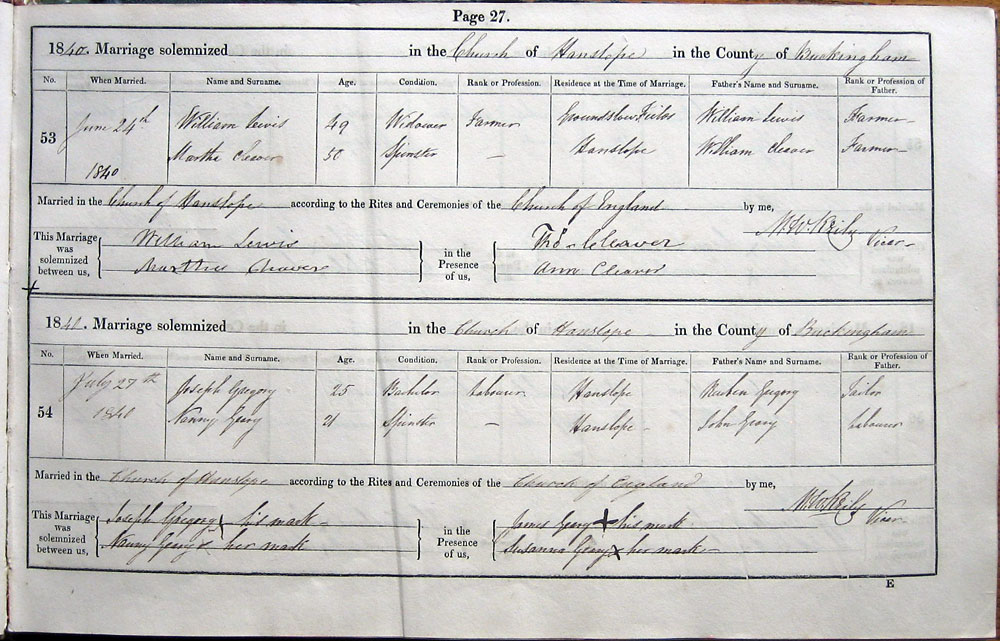 Page 27.
1840. Marriage solemnized in the Church of Hanslope in the County of Buckingham
No. When Married. Name and Surname. Age. Condition. Rank or Profession. Residence at the Time of Marriage. Father's Name and Surname. Rank or Profession of Father.
53 June 24th William Lewis 49 Widower Farmer William Lewis Farmer
1840 Martha Cleaver 50 Spinster — Hanslope William Cleaver Farmer
Married in the Church of Hanslope according to the Rites and Ceremonies of the Church of England by me,
Vicar
This Marriage was solemnized between us, William Lewis in the Presence of us, Thos Cleaver
Martha Cleaver Ann Cleaver
1840. Marriage solemnized in the Church of Hanslope in the County of Buckingham
No. When Married. Name and Surname. Age. Condition. Rank or Profession. Residence at the Time of Marriage. Father's Name and Surname. Rank or Profession of Father.
54 July 27th Joseph Gregory 25 Bachelor Labourer Hanslope Reuben Gregory Tailor
1840 Nanny Geary 21 Spinster — Hanslope John Geary Labourer
Married in the Church of Hanslope according to the Rites and Ceremonies of the Church of England by me,
Vicar
This Marriage was solemnized between us, Joseph Gregory his mark in the Presence of us, James Geary + his mark
Nanny Geary x her mark Susanna Geary x her mark
E